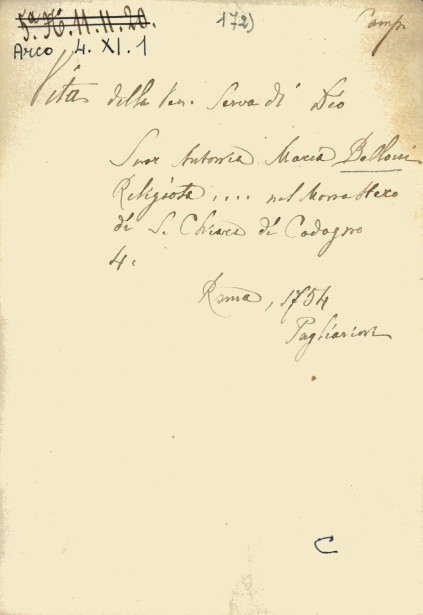 5ª H. 11. 11. 20.
172)
Camp
Arco 4. XI. 1
Vita della Ven. Serva di Dio
Suor Antonia Maria Belloni
Religiosa .... nel Monastero
di S. Chiara di Codogno
4.
Roma, 1754
Pagliarini
C